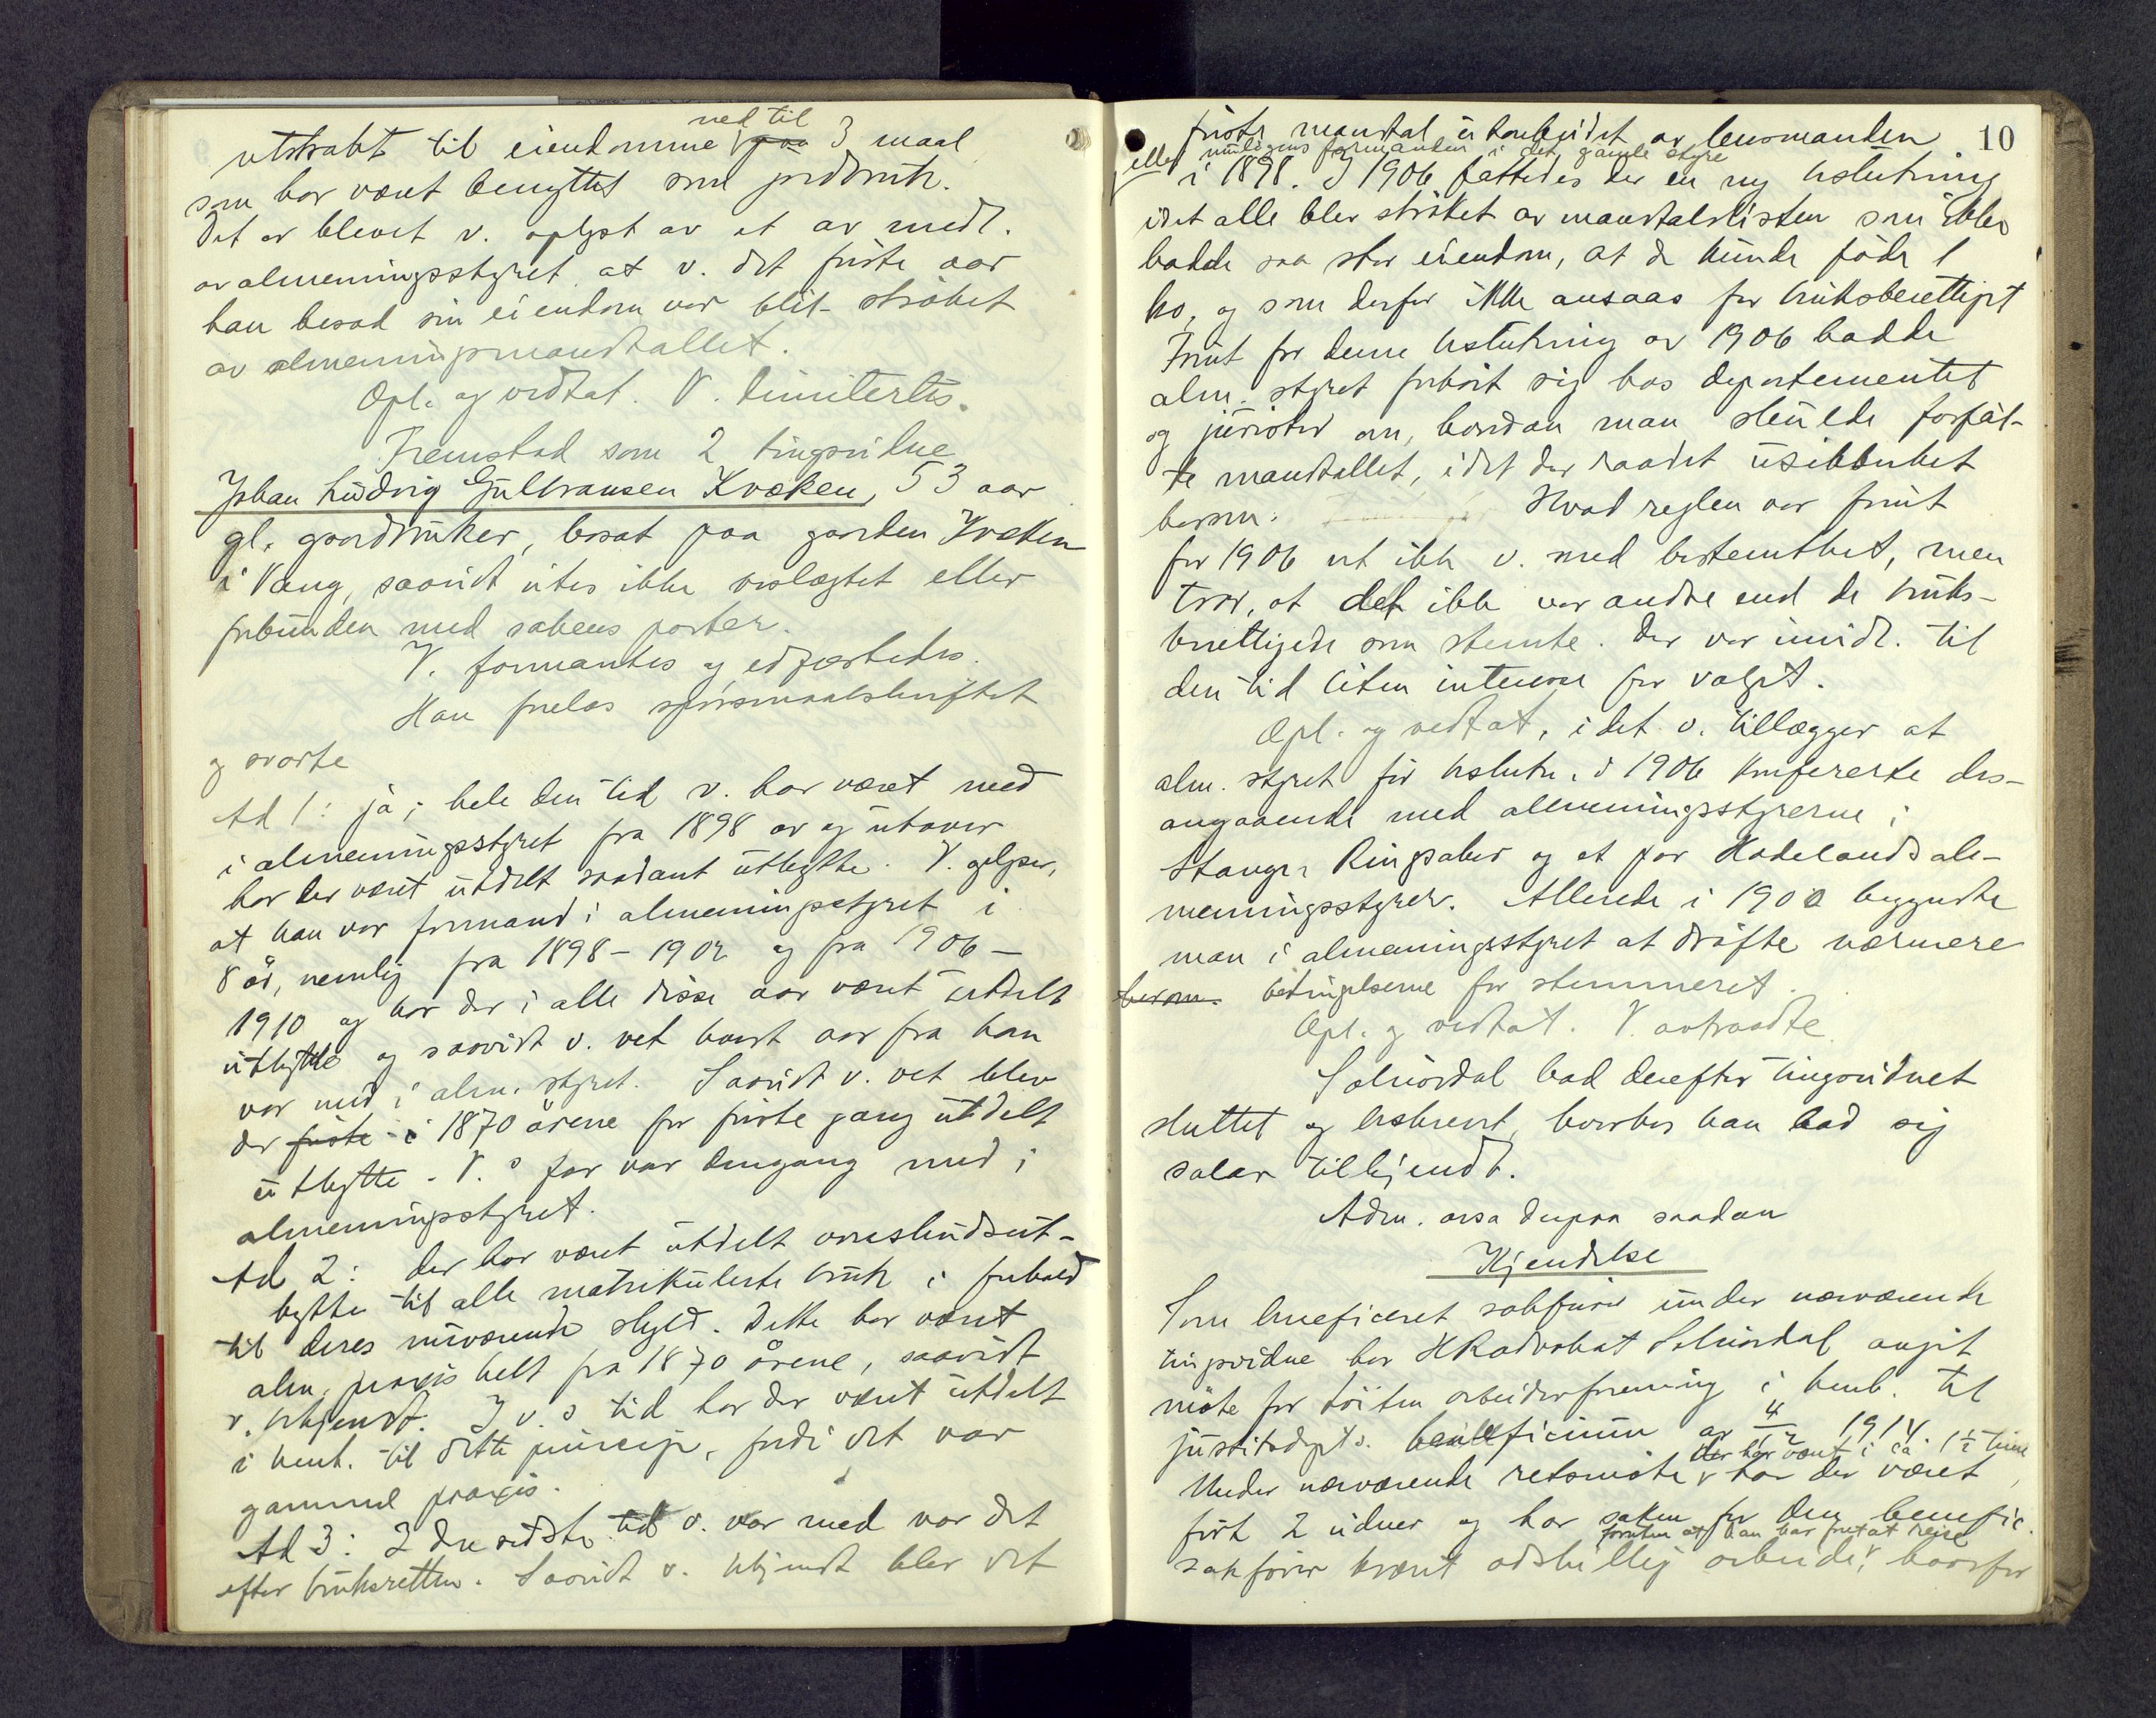 utstrakt til eiendomme ned til paa 3 maal
som har været benyttet som jordbruk.
Det er blevet v. oplyst av et av medl.
av almenningsstyret at v. det første aar
han besad sin eiendom var blit strøket
av almenningsmandtallet.
Opl. og vedtat. V. dimitertes.
Fremstod som 2 tingsvidne
Johan Ludvig Gulbransen Kvæken, 53 aar
gl. gaardbruker, bosat paa gaarden Kvæken
i Vang, saavidt vites ikke beslægtet eller
forbunden med sakens parter.
V. formantes og edfæstedes.
Han frelas spørsmaalsskriftet
og svarte
Ad 1: ja; hele den tid v. har været med
i almenningsstyret fra 1898 av og utover
har der været utdelt saadant utbytte. V. oplyser,
at han var formand i almenningsstyret i
8 år, nemlig fra 1898 - 1902 og fra 1906 -
1910 og har der i alle disse aar været utdelt
utbytte og saavidt v. vet hvert aar fra han
var med i alm. styret. Saavidt v. vet blev
der første i 1870 årene for første gang utdelt
utbytte. V.s far var dengang med i
almenningsstyret.
Ad 2: der har været utdelt overskudsut-
bytte til alle matrikulerte bruk i forhold
til deres nuværende skyld. Dette har været
alm. praxis helt fra 1870 årene, saavidt
v. bekjendt. I v.s tid har der været utdelt
i henh. til dette princip, fordi det var
gammel praxis.
Ad 3: I den sidste tid v. var med var det
efter bruksretten. Saavidt v. bekjendt blev det
10
første mandtal utarbeidet av lensmanden
eller muligens formanden i det gamle styre
i 1898. I 1906 fattedes der en ny beslutning
idet alle blev strøket av mandtalslisten som ikke
hadde saa stor eiendom, at de kunde føde 1
ko, og som derfor ikke ansaas for bruksberettiget
Forut for denne beslutning av 1906 hadde
alm. styret forhørt sig hos departementet
og jurister om, hvordan man skulde forfat-
te mandtallet, idet der raadet usikkerhet
herom. Hvad reglen var forut
for 1906 vet ikke v. med bestemthet, men
tror, at det ikke var andre end de bruks-
berettigede som stemte. Der var imidl. til
den tid liten interesse for valget.
Opl. og vedtat, idet v. tillægger at
alm. styret før beslutn. i 1906 konfererte des-
angaaende med almenningsstyrerne i
Stange, Ringsaker og et par Hadelandsal-
menningsstyrer. Allerede i 1900 begyndte
man i almenningsstyret at drøfte nærmere
herom. betingelserne for stemmeret.
Opl. og vedtat. V. avtraadte.
Solnørdal bad derefter tingsvidnet
sluttet og beskrevet, hvorhos han bad sig
salær tilkjendt.
Adm. avsa derpaa saadan
Kjendelse
Som beneficeret sakfører under nærværende
tingsvidne har HRadvokat Solnørdal avgit
møte for Løiten arbeiderforening i henh. til
justitsdepts. beneficium av 4/12 1914.
Under nærværende retsmøte der har varet i ca. 1½ time har der været
ført 2 vidner og har saken for den benefic.
sakfører krævet adskillig arbeide, foruten at han har foretat reise hvorfor